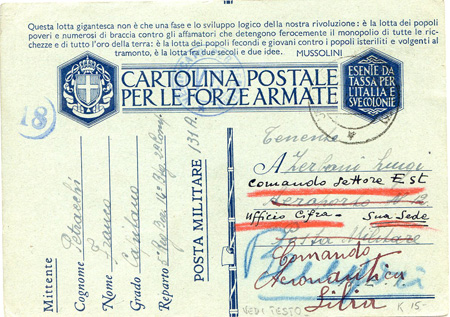 Questa lotta gigantesca non è che una fase e lo sviluppo logico della nostra rivoluzione: è la lotta dei popoli
poveri e numerosi di braccia contro gli affamatori che detengono ferocemente il monopolio di tutte le ric-
chezze e di tutto l'oro della terra: è la lotta dei popoli fecondi e giovani contro i popoli isteriliti e volgenti al
tramonto, è la lotta fra due secoli e due idee.
MUSSOLINI
CARTOLINA POSTALE
PER LE FORZE ARMATE
ESENTE DA
TASSA PER
L'ITALIA E
LE COLONIE
18
Mittente
Cognome Petracchi
Nome Franco
Grado Capitano
Reparto
POSTA MILITARE 131 A.
Tenente
A Zerbani Luigi
Comando settore Est
Aeroporto
Ufficio Cifra - Sua Sede
Posta Militare
Comando
Aeronautica
Libia
VEDI TESTO
K 15-